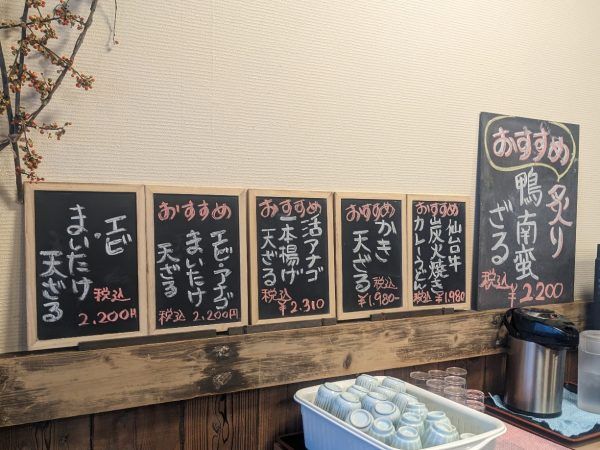 エビ・
まいたけ
天ざる
税込
2.200円
おすすめ
エビ・アナゴ
まいたけ
天ざる
税込 2,200円
おすすめ
活アナゴ
一本揚げ
天ざる
税込
¥2.310
おすすめ
かき
天ざる
税込
¥1,980-
おすすめ
仙台牛
炭火焼き
カレーうどん
税込 ¥1,980
おすすめ
炙り
鴨南蛮
ざる
税込
¥2200